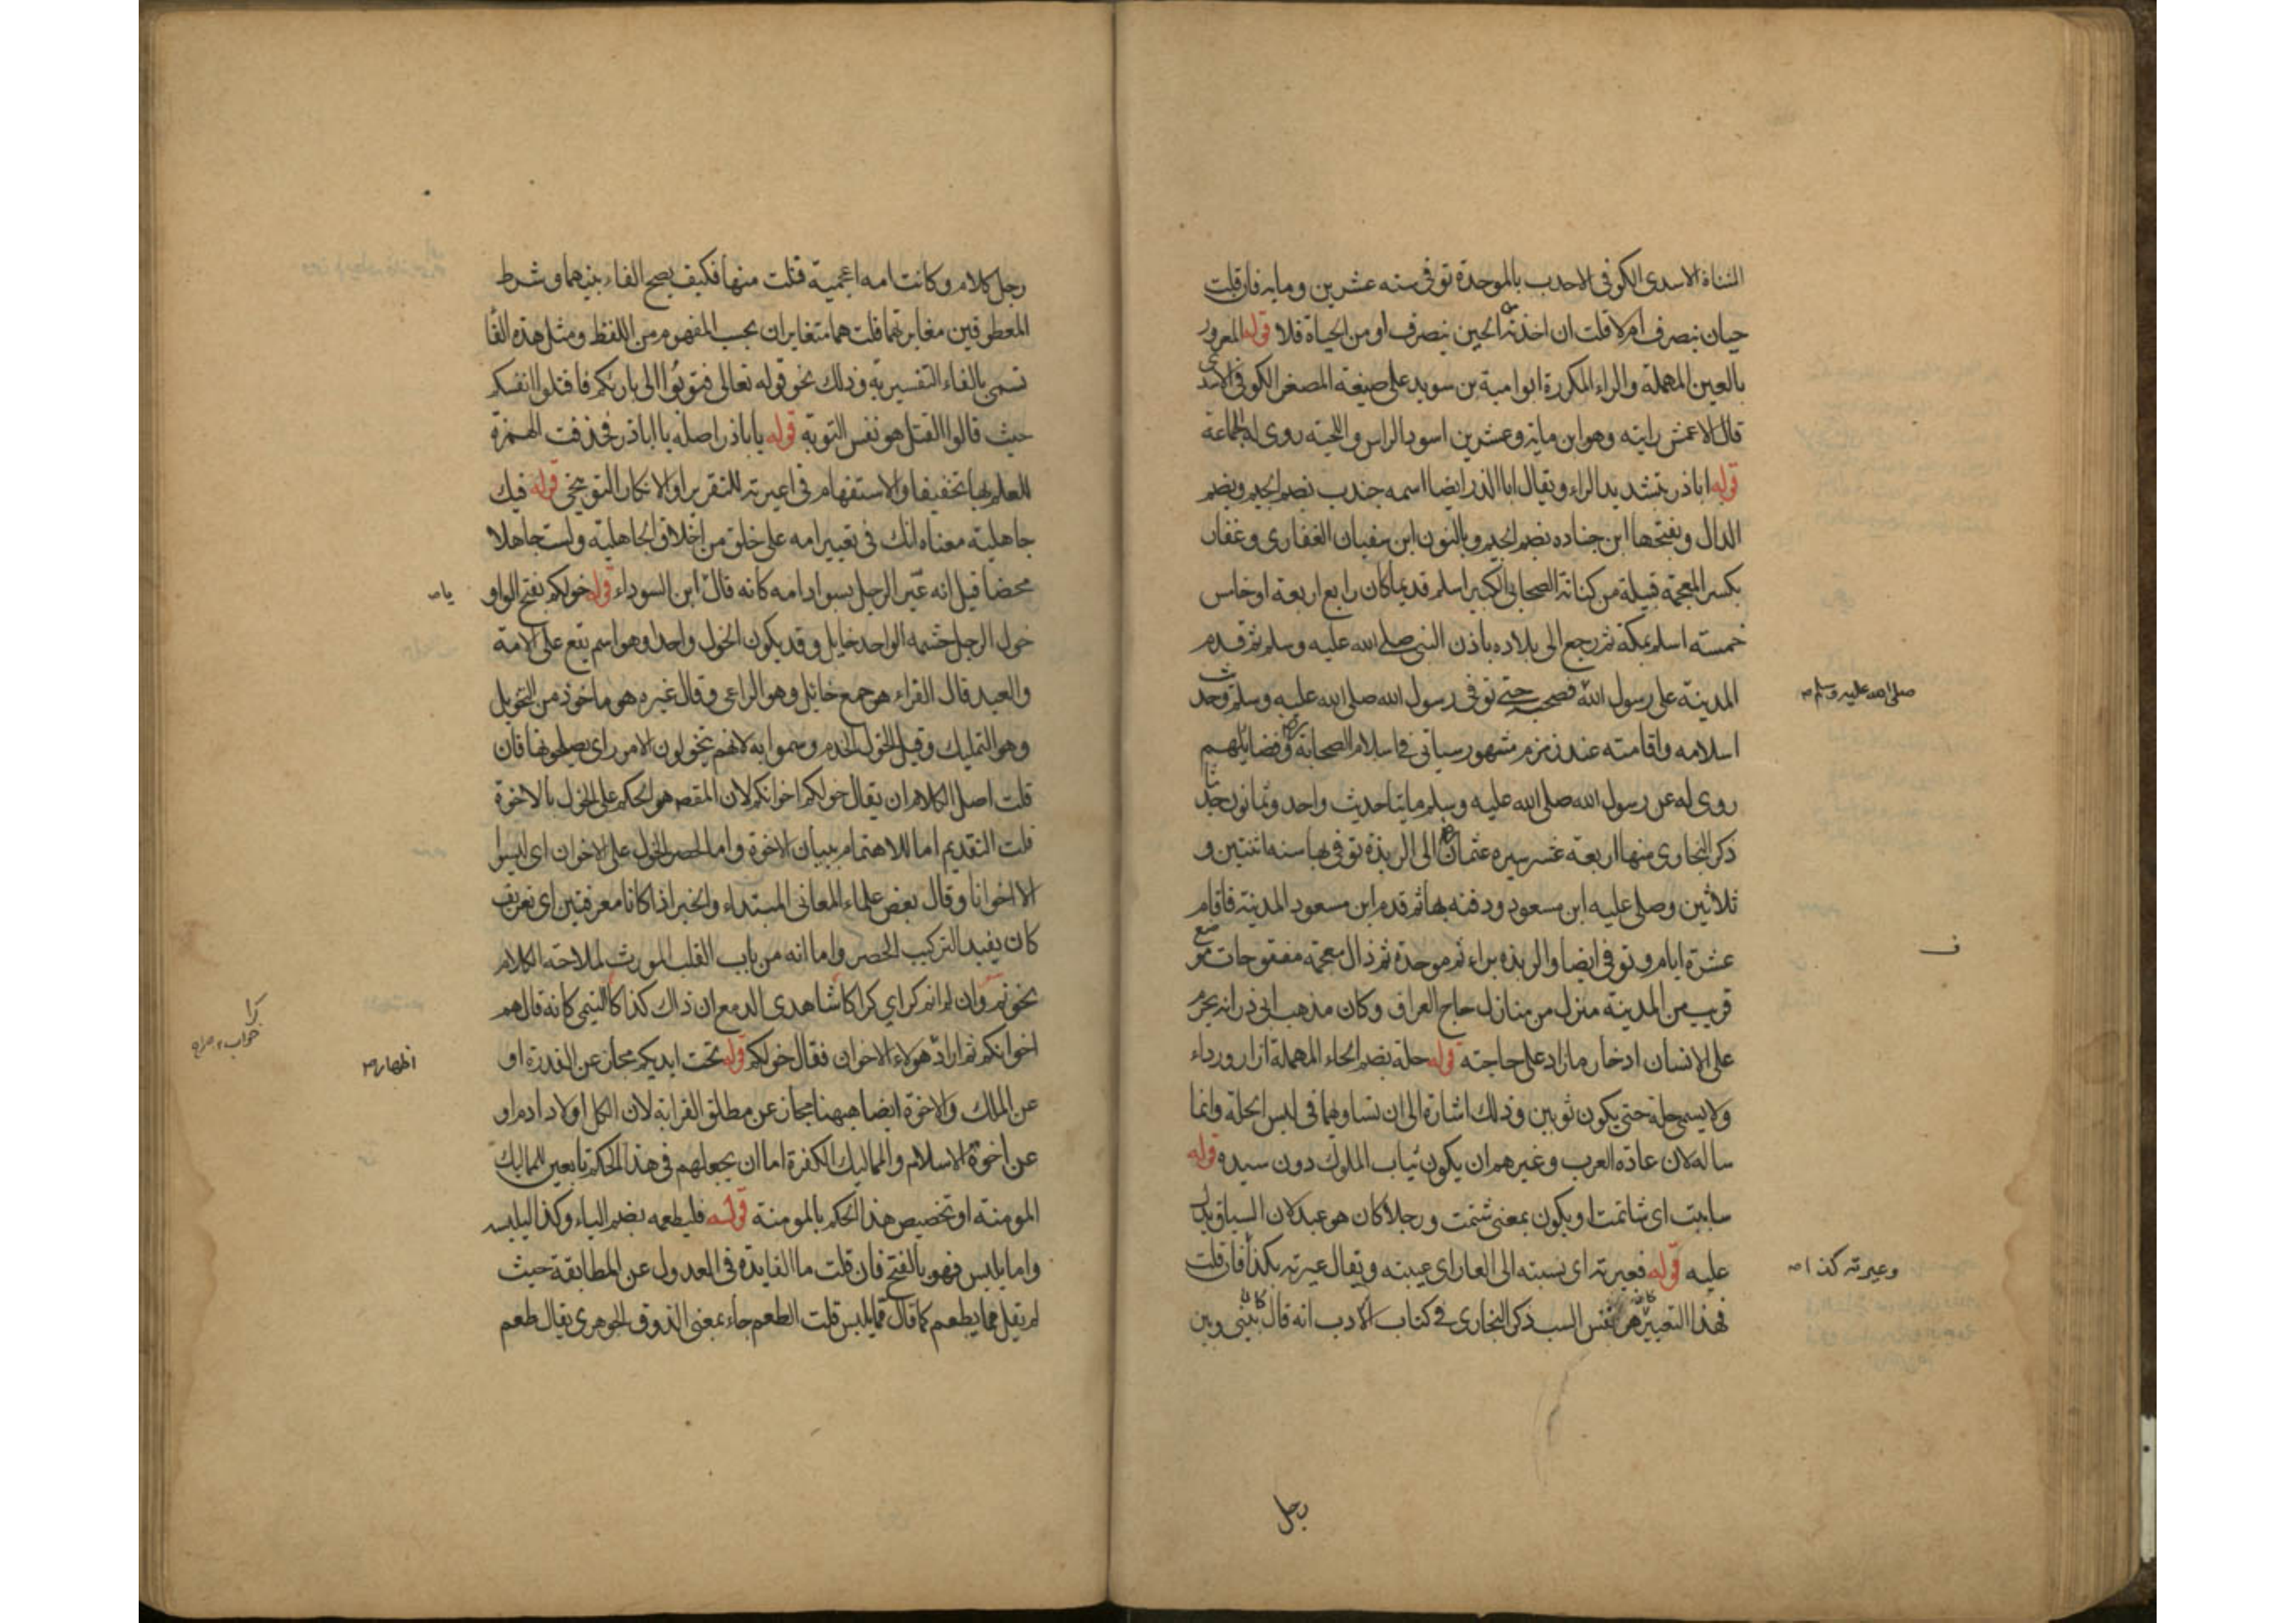 المثناة الاسدى الكوفى الاحدب بالموحدة توفى سنه عشرين ومايه فان قلت
حيان ينصرف ام لا قلت ان اخذته من الحين ينصرف او من الحياة فلا قوله المعرور
بالعين المهملة والراء المكررة ابو امية بن سويد على صيغة المصغر الكوفى الاسدى
قال الاعمش رايته وهو ابن ماية وعشرين اسود الراس واللحية روى له الجماعة
قوله اباذر بتشديد الراء ويقال ابا الذر ايضا اسمه جندب بضم الجيم وبضم
الدال وبفتحها ابن جناده بضم الجيم وبالنون ابن سفيان الغفارى وغفار
بكسر المعجمة قبيلة من كنانة الصحابى الكبير اسلم قديما كان رابع اربعة او خامس
خمسته اسلم بمكة ثم رجع الى بلاده باذن النبى صلى الله عليه وسلم ثم قدم
المدينة على رسول الله فصحبه حتى توفى رسول الله صلى الله عليه وسلم وحديث
صلى الله عليه وسلم صح
اسلامه واقامته عند زمزم مشهور سياتى فى اسلام الصحابة وفضايلهم
روى له عن رسول الله صلى الله عليه وسلم مايتا حديث واحد وثمانون حديثا
ذكر البخارى منها اربعة عشر سيره عثمان الى الربذة توفى بها سنه اثنتين و
ثلاثين وصلى عليه ابن مسعود ودفنه بها ثم قدم ابن مسعود المدينة فاقام
عشرة ايام وتوفى ايضا والربذه براء ثم موحدة ثم ذال معجمة مفتوحات موضع
ف
قريب من المدينة منزل من منازل حاج العراق وكان مذهب ابى ذر انه يحرم
على الانسان ادخار ما زاد على حاجته قوله حلة بضم الحاء المهملة ازار ورداء
ولا يسمى حلة حتى يكون ثوبين وذلك اشارة الى ان تساويهما فى لبس الحلة وانما
ساله لان عادة العرب وغيرهم ان يكون ثياب الملوك دون سيده قوله
ساببت اى شاتمت او يكون بمعنى شتمت ورجلا كان هو عبد لان السياق يدل
عليه قوله فعيرته اى نسبته الى العار اى عيبته ويقال عيرته بكذا فان قلت
وعيرته كذا صح
فهذا التعيير كان نفس السب ذكر البخارى فى كتاب الادب انه قال كان بينى وبين
رجل
رجل كلام وكانت امه اعجمية فنلت منها فكيف يصح الفاء بينهما وشرط
المعطوفين مغايرتهما قلت هما متغايران بحسب المفهوم من اللفظ ومثل هذه الفا
تسمى بالفاء التفسيرية وذلك نحو قوله تعالى فتوبوا الى بارئكم فاقتلوا انفسكم
حيث قالوا القتل هو نفس التوبة قوله ياباذر اصله يا اباذر فحذفت الهمزة
للعلم بها تخفيفا والاستفهام فى اعيرته للتقرير او الانكار التوبيخى قوله فيك
جاهلية معناه انك فى تعيير امه على خلق من اخلاق الجاهلية ولست جاهلا
محضا قيل انه عير الرجل بسواد امه كانه قال ابن السوداء قوله خولكم بفتح الواو
يا صح
خول الرجل حشمه الواحد خايل وقد يكون الخول واحدا وهو اسم يقع على الامة
والعبد قال الفراء هو جمع خائل وهو الراعى وقال غيره هو ماخوذ من التخويل
وهو التمليك وقيل الخول الخدم وسموا به لانهم يتخولون الامور اى يصلحونها فان
قلت اصل الكلام ان يقال خولكم اخوانكم لان المقص هو الحكم على الخول بالاخوة
قلت التقديم اما للاهتمام ببيان الاخوة واما لحصر الخول على الاخوان اى ليسوا
الا اخوانا وقال بعض علماء المعانى المبتداء والخبر اذا كانا معرفتين اى تعريف
كان يفيد التركيب الحصر واما انه من باب القلب المورث لملاحة الكلام
نحو نم وان لم انم كراي كراكا شاهدى الدمع ان ذاك كذاكا التيمى كانه قال هم
كرا خواب
اخوانكم ثم اراد هولاء الاخوان فقال خولكم قوله تحت ايديكم مجاز عن القدرة او
اظهار صح
عن الملك والاخوة ايضا ههنا مجاز عن مطلق القرابة لان الكل اولاد ادم او
عن اخوة الاسلام والمماليك الكفرة اما ان يجعلهم فى هذا الحكم تابعين للمماليك
المومنة او تخصيص هذا الحكم بالمومنة قوله فليطعمه بضم الياء وكذا ليلبسه
واما يلبس فهو بالفتح فان قلت ما الفايدة فى العدول عن المطابقة حيث
لم يقل مما يطعم كما قال مما يلبس قلت الطعم جاء بمعنى الذوق الجوهرى يقال طعم